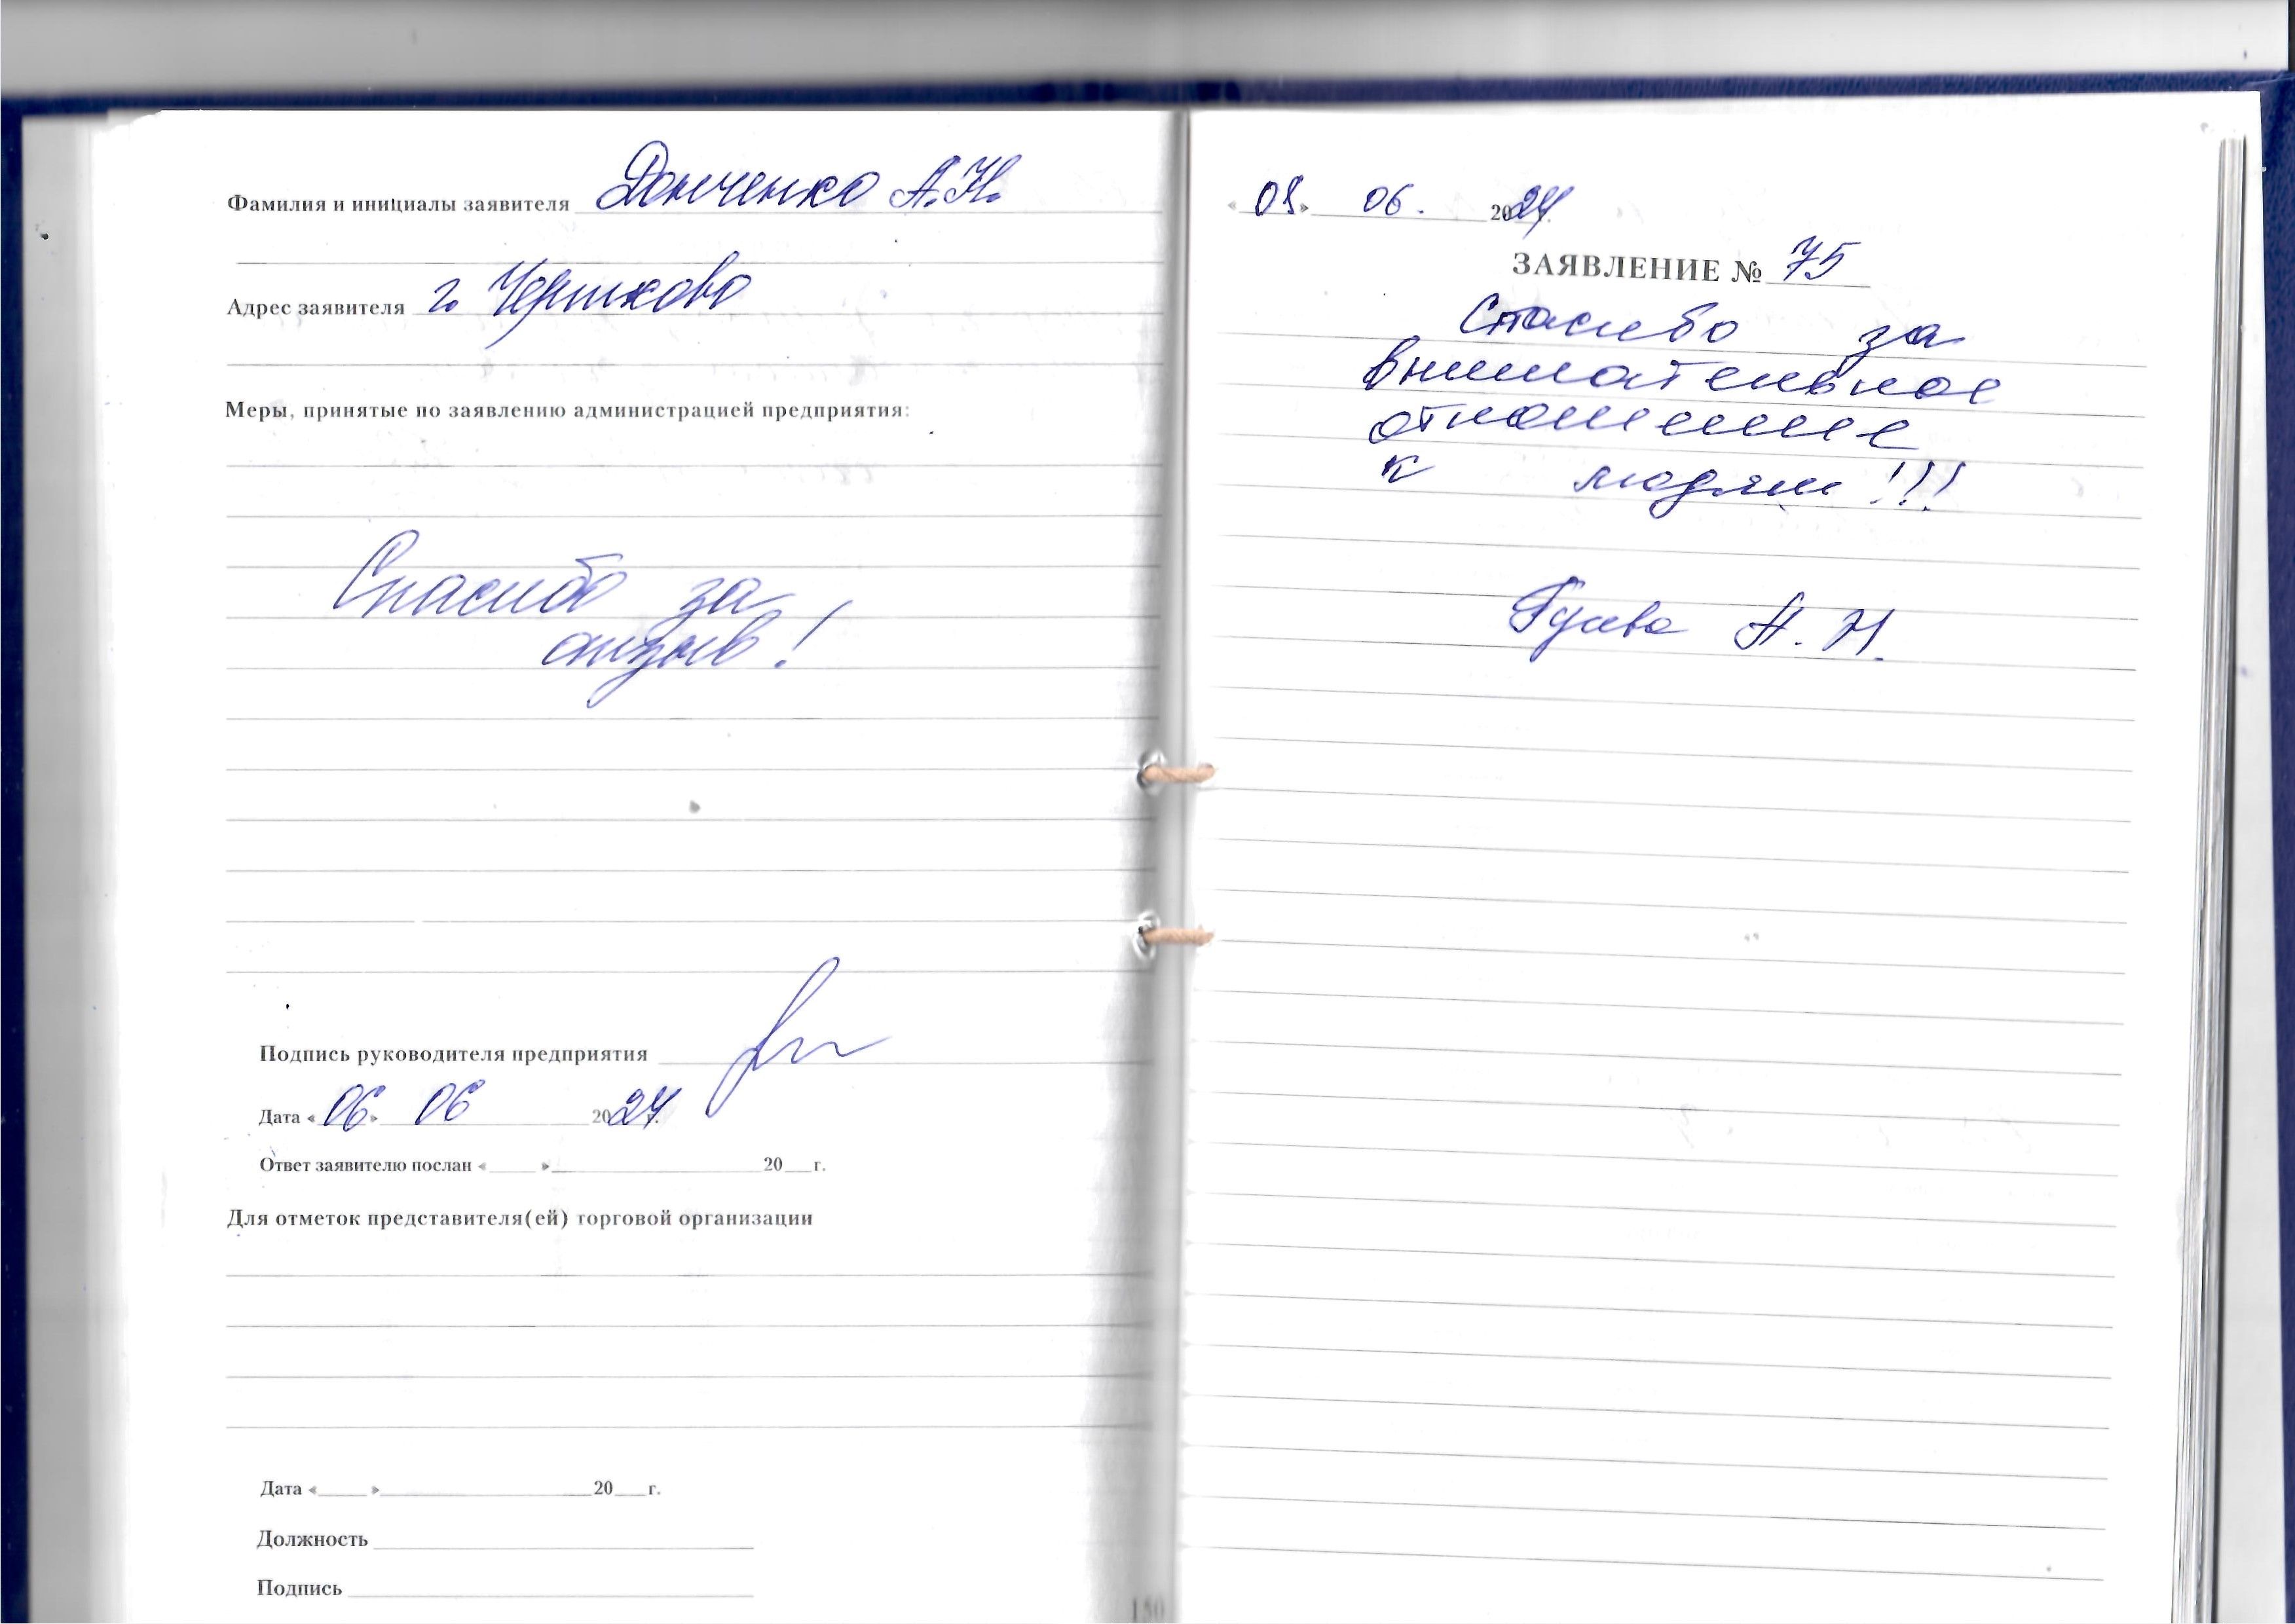 Фамилия и инициалы заявителя Донченко А.Н.
Адрес заявителя г. Чертково
Меры, принятые по заявлению администрацией предприятия:
Спасибо за
отзыв!
Подпись руководителя предприятия
Дата «06» 06 2024 г.
Ответ заявителю послан « » 20 г.
Для отметок представителя(ей) торговой организации
Дата « » 20 г.
Должность
Подпись
150
« » 06. 2024
ЗАЯВЛЕНИЕ № 75
Спасибо за
внимательное
отношение
к людям!!!
А. Н.